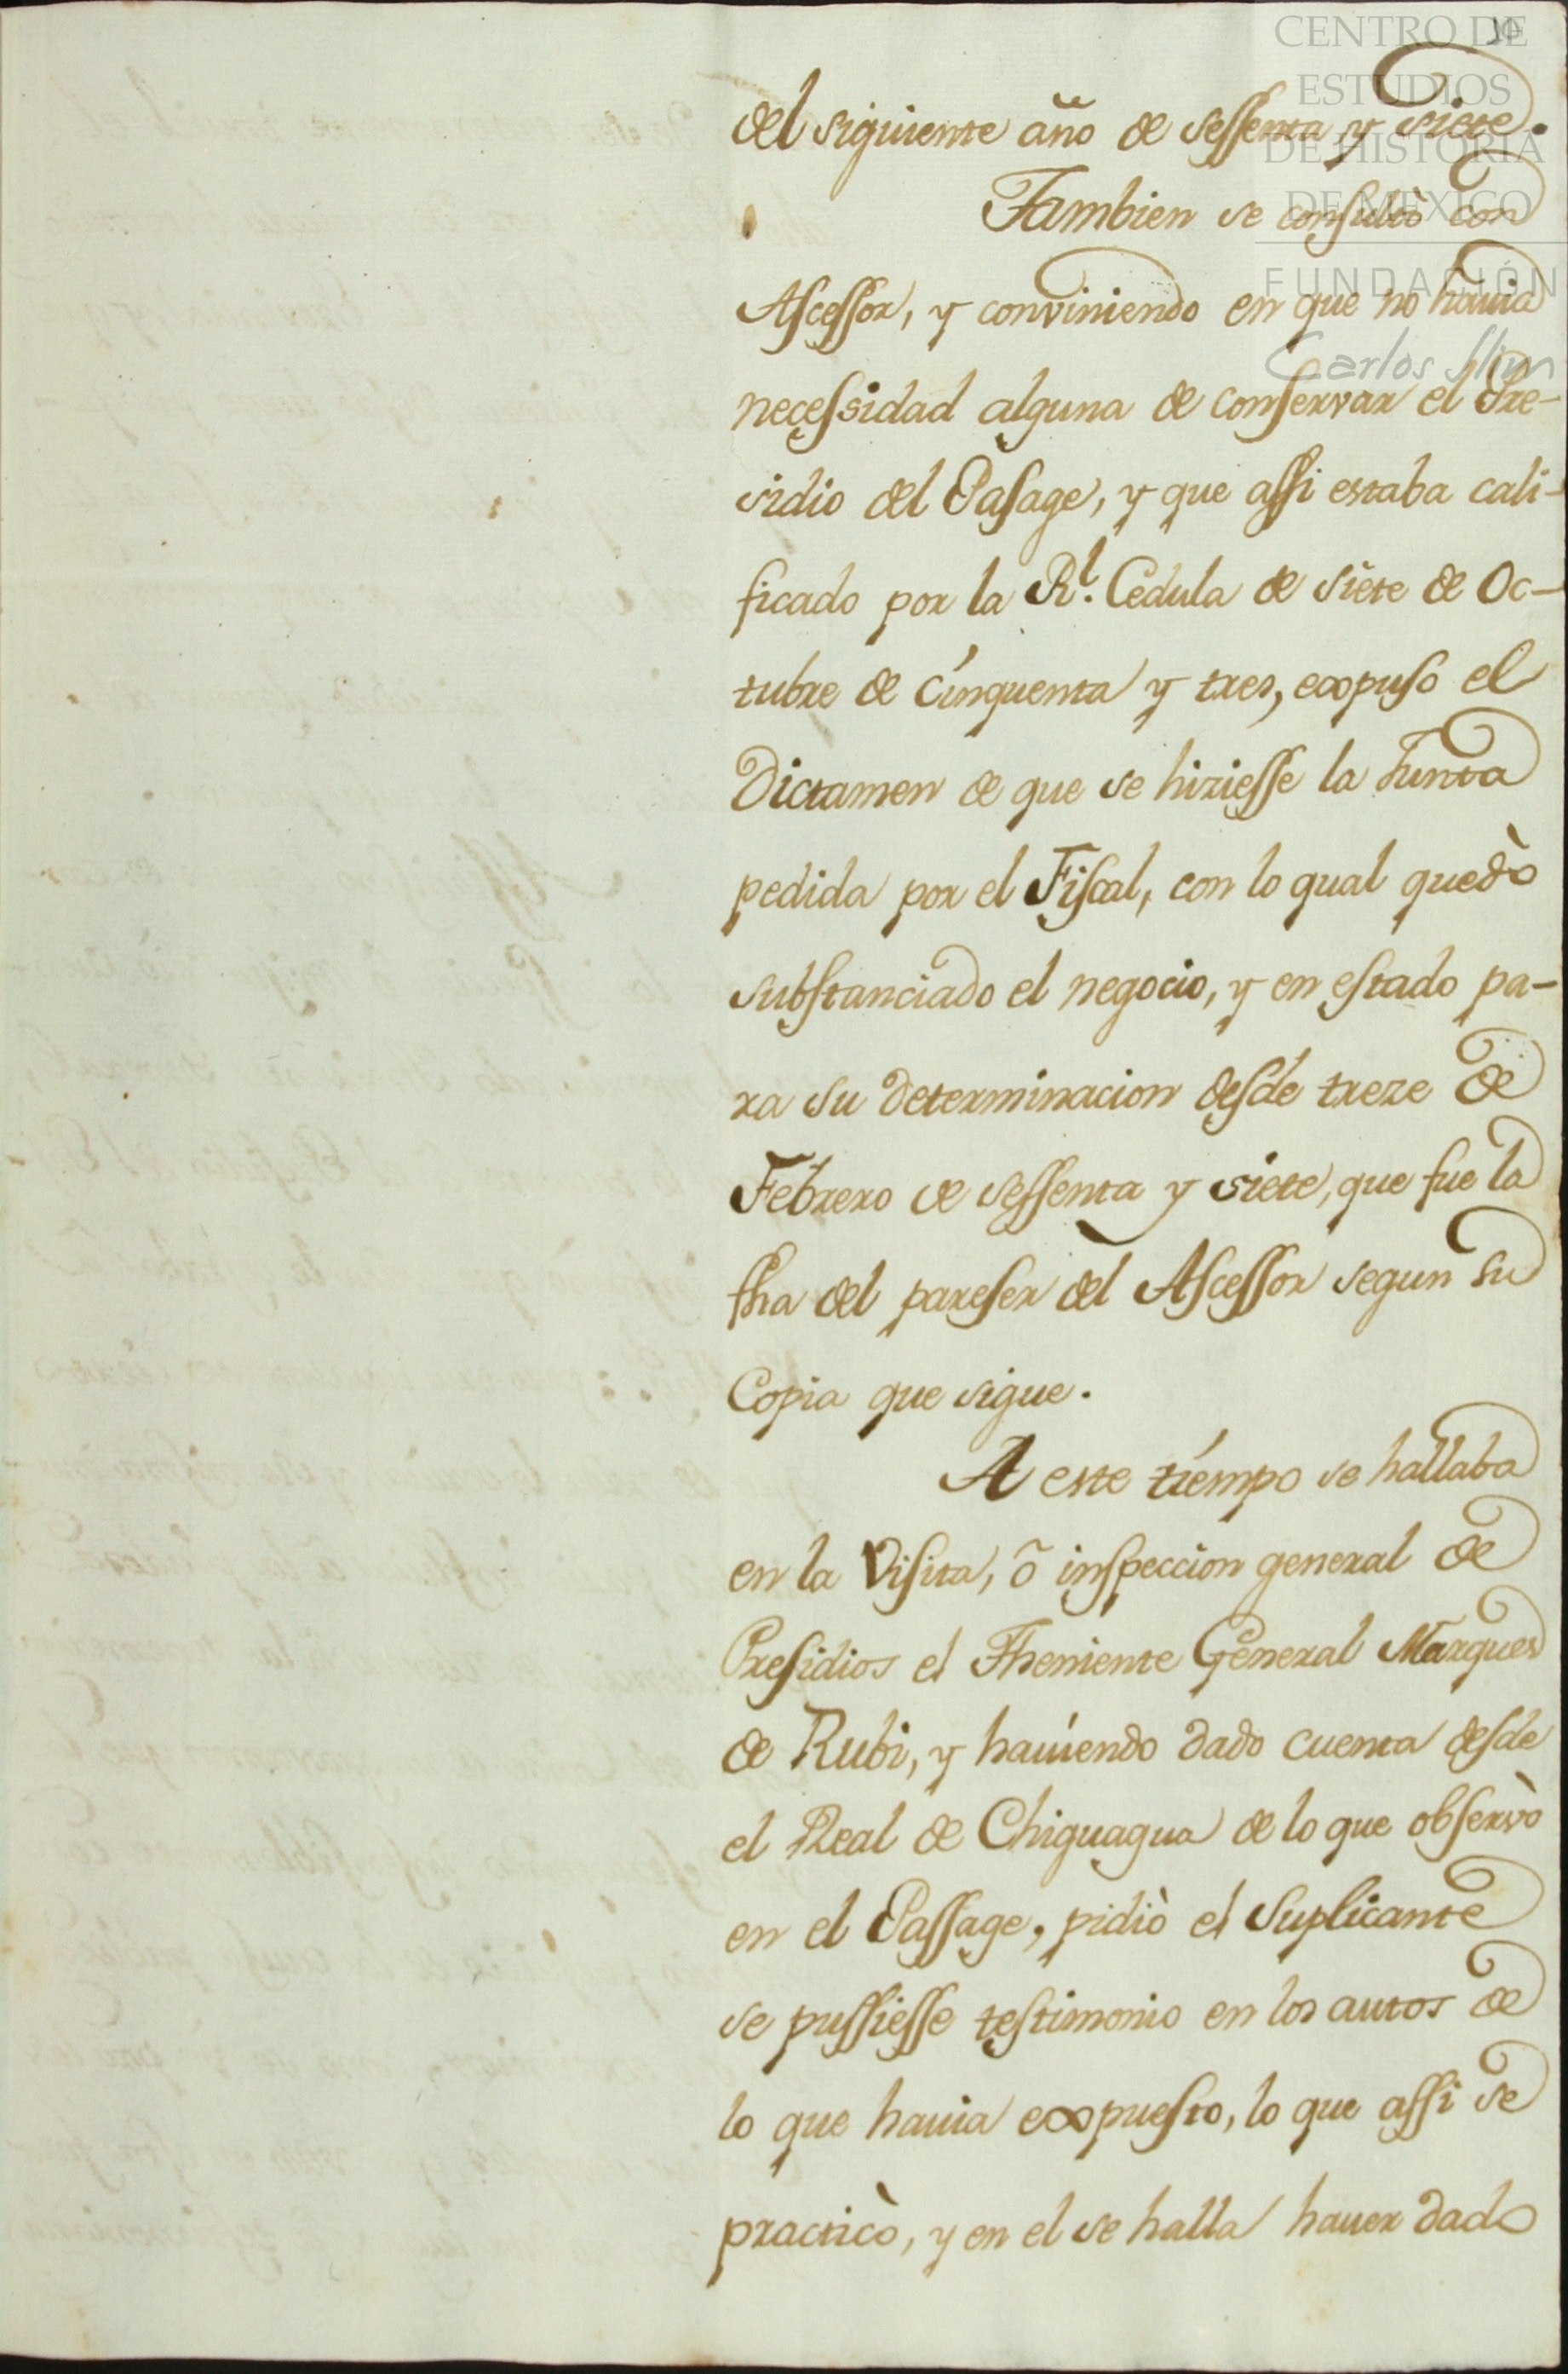 CENTRO DE
ESTUDIOS
DE HISTORIA
DE MEXICO
FUNDACIÓN
Carlos Slim
del siguiente año de sessenta y siete.
Tambien se consultò con
Ascessor, y conviniendo en que no havia
necessidad alguna de conservar el Pre-
sidio del Pasage, y que assi estaba cali-
ficado por la Rl. Cedula de siete de Oc-
tubre de cinquenta y tres, expuso el
Dictamen de que se hiziesse la Junta
pedida por el Fiscal, con lo qual quedò
substanciado el negocio, y en estado pa-
ra su determinacion desde treze de
Febrero de sessenta y siete, que fue la
fha del pareser del Ascessor segun su
Copia que sigue.
A este tiempo se hallaba
en la Visita, õ inspeccion general de
Presidios el Theniente General Marques
de Rubi, y haviendo dado cuenta desde
el Real de Chiguagua de lo que observò
en el Passage, pidiò el Suplicante
se pussiesse testimonio en los autos de
lo que havia expuesto, lo que assi se
practicò, y en el se halla haver dado